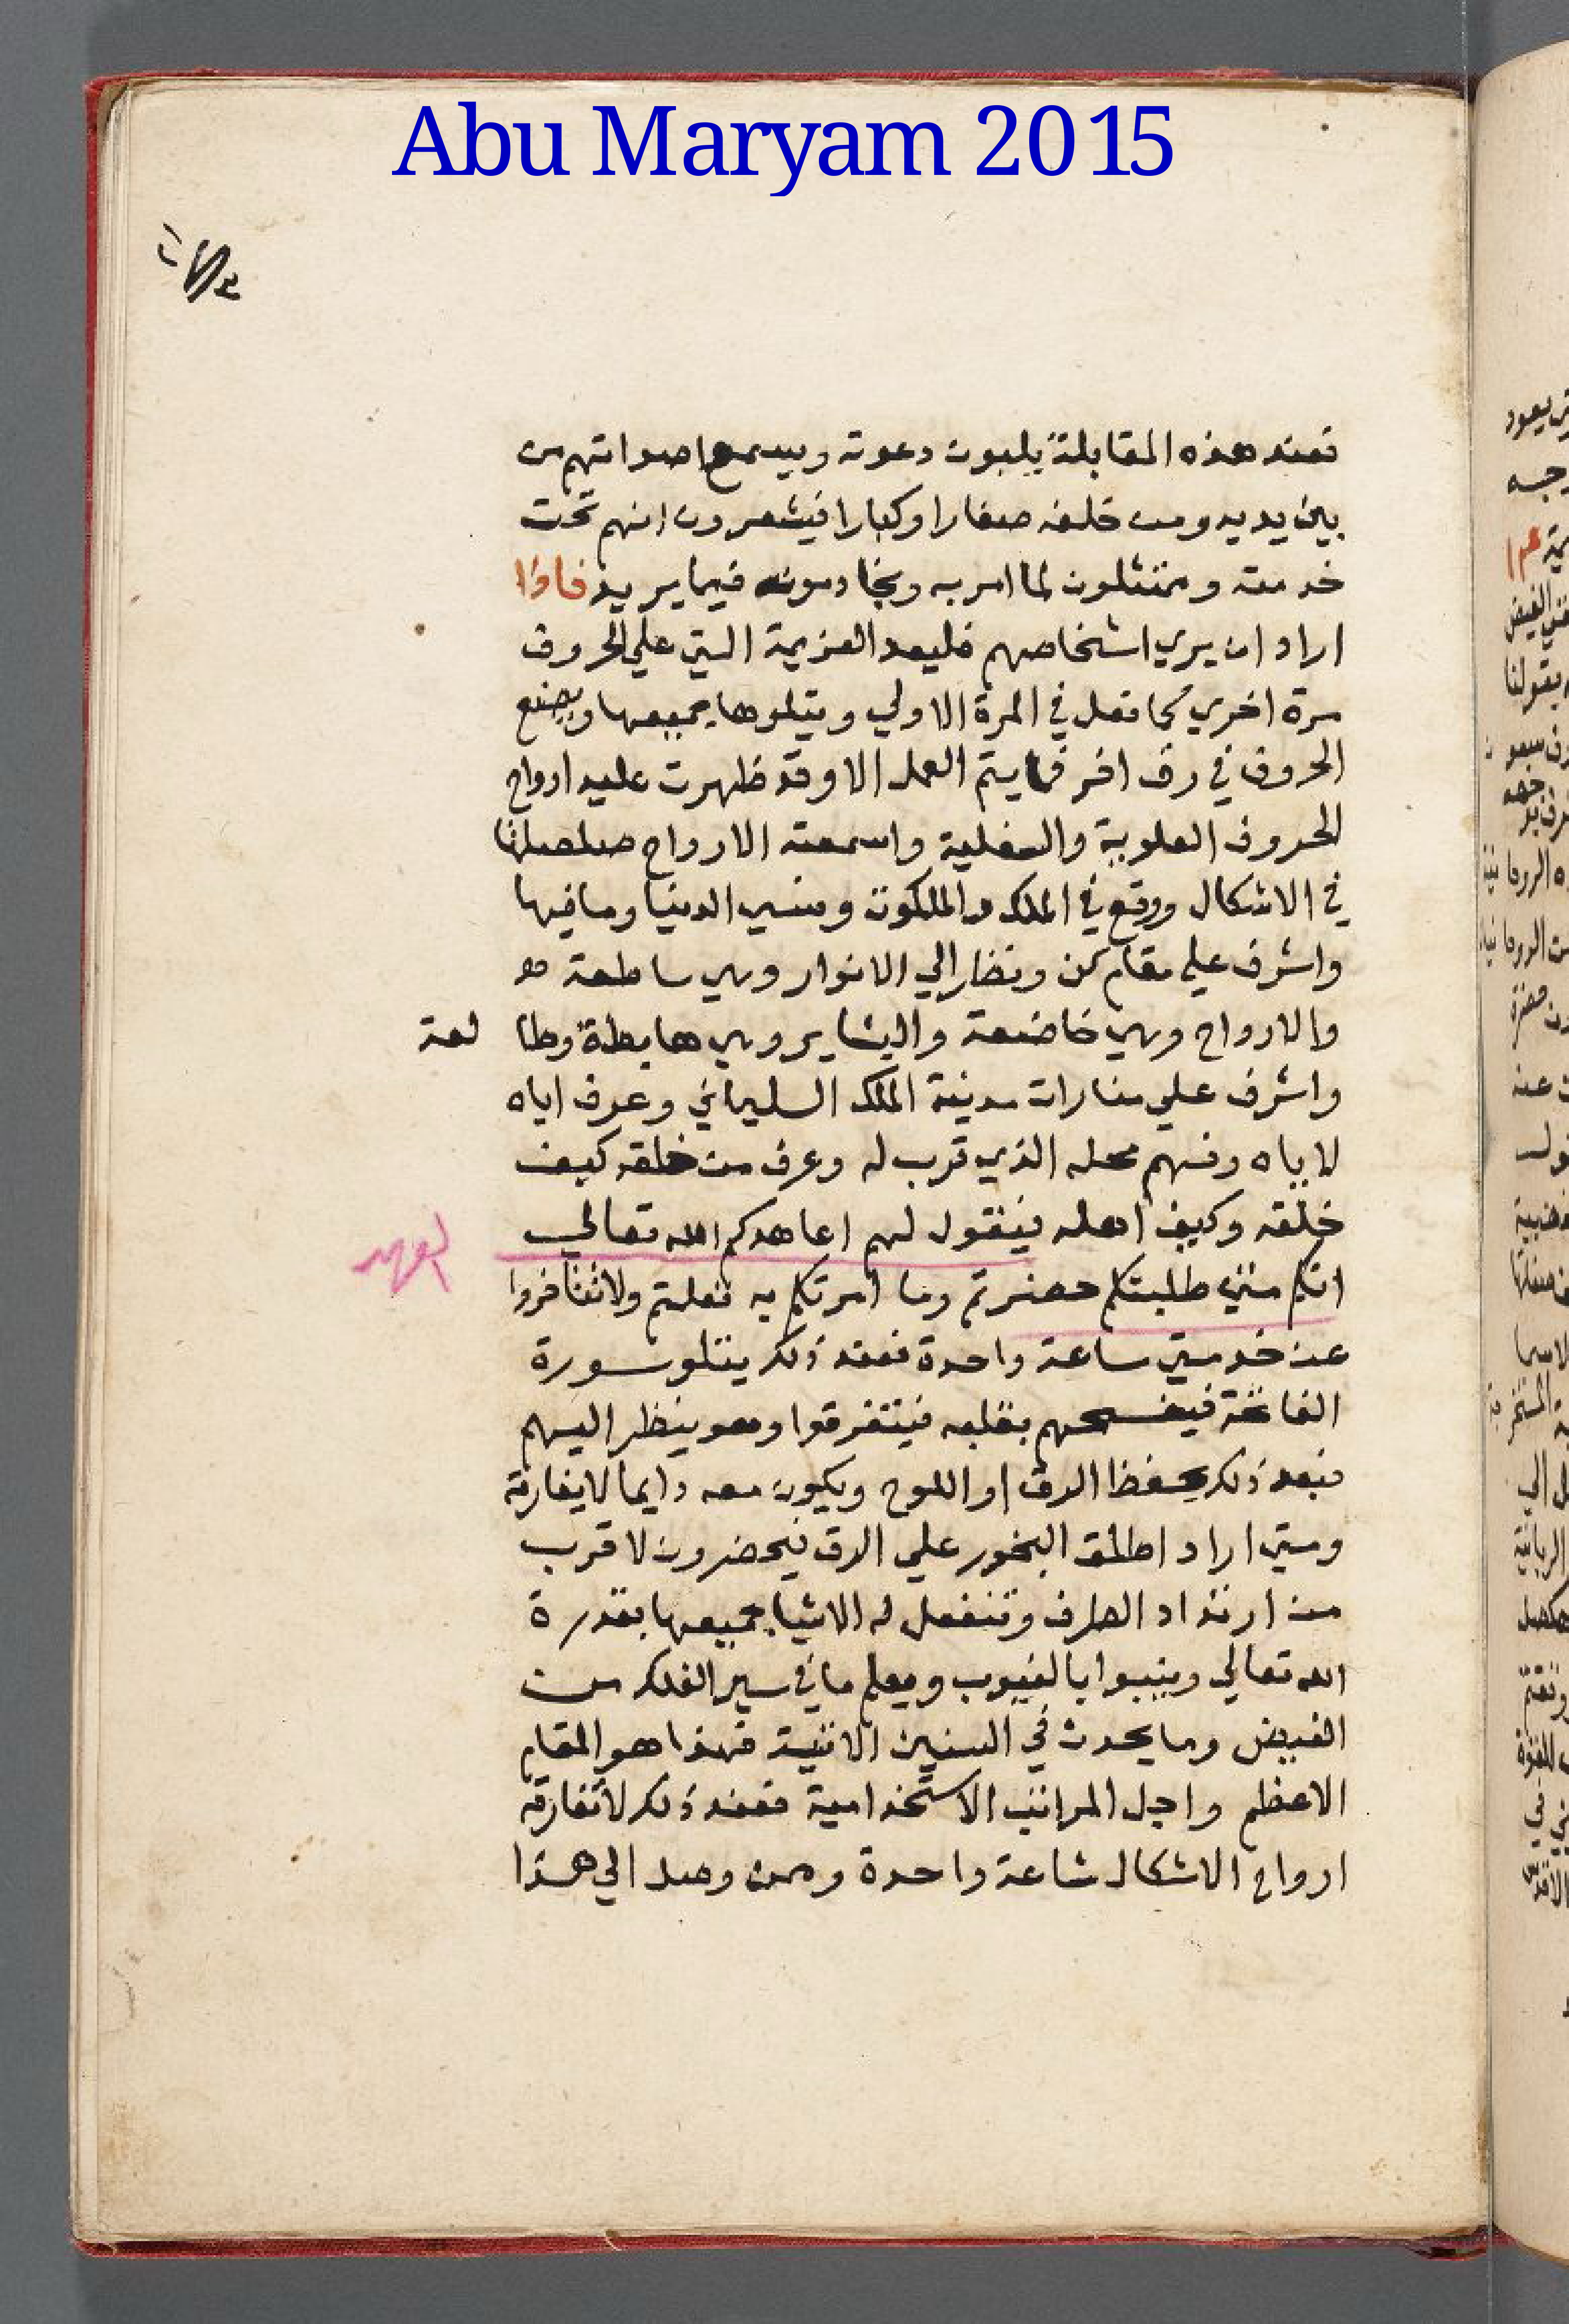 Abu Maryam 2015
فعند هذه المقابلة يلبون دعوته ويسمع اصواتهم من
بين يديه ومن خلفه صغارا وكبارا فيشعرون انهم تحت
خدمته وممتثلون لما امر به ويخادمونه فيما يريد فاذا
اراد ان يري اشخاصهم فليعد العزيمة التي علي الحروف
مرة اخري كما فعل في المرة الاولي ويتلوها جميعها ويضع
الحروف في رق اخر فما يتم العمل الا وقد ظهرت عليه ارواح
الحروف العلوية والسفلية واسمعته الارواح صلصلتها
في الاشكال ووقع في الملك والملكوت ونسي الدنيا وما فيها
واشرف علي مقام كن ونظر الي الانوار وهي ساطعة
والارواح وهي خاضعة والبشاير وهي هابطة وطا لعة
واشرف علي منارات مدينة الملك السليماني وعرف اياه
لاياه وفهم محله الذي قرب له وعرف من خلقه كيف
خلقه وكيف اهله فيقول لهم اعاهدكم الله تعالي
العهد
انكم متي طلبتكم حضرتم وما امرتكم به فعلتم ولا تتافروا
عن خدمتي ساعة واحدة فعند ذلك يتلو سورة
الفاتحة فيفسحهم بقلبه فيتفرقوا وهو ينظر اليهم
فبعد ذلك يحفظ الرق او اللوح ويكون معه دايما لا يفارقه
ومتي اراد اطلق البخور علي الرق فيحضرون لا قرب
من ارتداد الطرف وتنفعل له الاشيا جميعها بقدرة
الله تعالي وينبوا بالغيوب ويعلم ما في سير الفلك من
الفيض وما يحدث في السنين الاتية فهذا هو المقام
الاعظم واجل المراتب الاستخدامية فعند ذلك لا تفارقه
ارواح الاشكال شاعة واحدة ومن وصل الي هذا